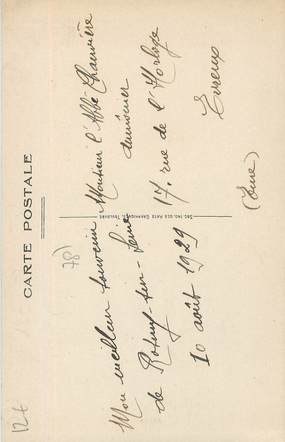 CARTE POSTALE
Mon meilleur souvenir
de Rosny-sur-Seine
10 août 1929
78)
Soc. des Arts Graphiques, Toulouse
Monsieur l'Abbé Chauvière
aumônier
17. rue de l'Horloge
Evreux
(Eure)
12€